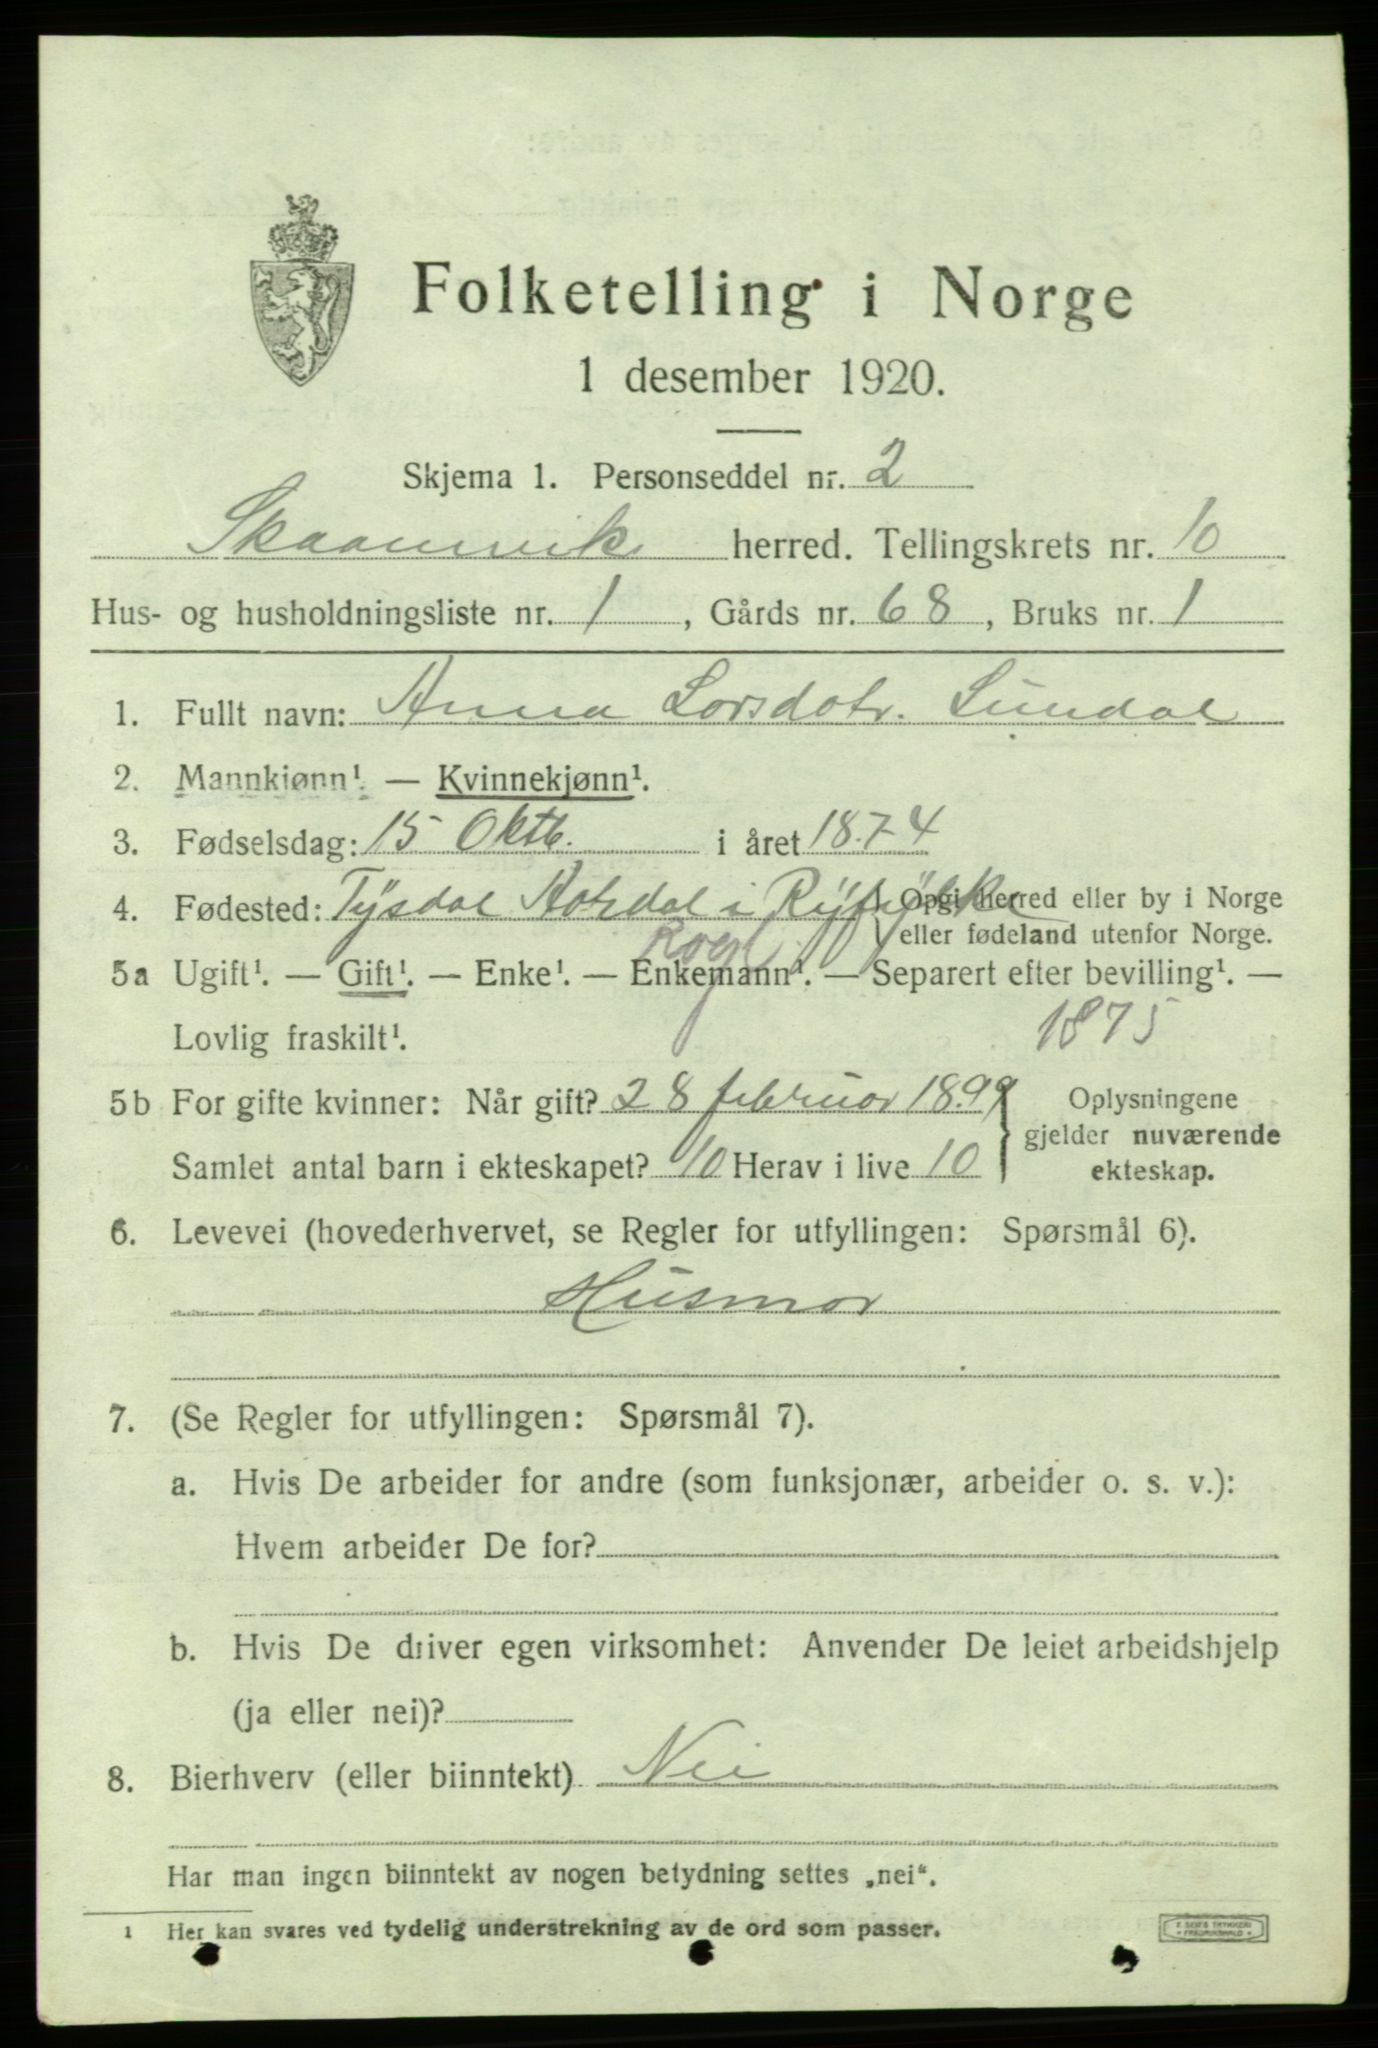 Folketelling i Norge
1 desember 1920.
Skjema 1. Personseddel nr. 2
Skaanevik herred. Tellingskrets nr. 10
Hus- og husholdningsliste nr. 1, Gårds nr. 68, Bruks nr. 1
1. Fullt navn: Anna Larsdotr. Sundal
2. Mannkjønn¹. — Kvinnekjønn¹.
3. Fødselsdag: 15 Oktb. i året 1874
4. Fødested: Tysdal i Ryfylke Opgi herred eller by i Norge
Rogl. eller fødeland utenfor Norge.
5a Ugift¹. — Gift¹. — Enke¹. — Enkemann¹. — Separert efter bevilling¹. —
Lovlig fraskilt¹. 1875
5b For gifte kvinner: Når gift? 28 februar 1899 Oplysningene
gjelder nuværende
Samlet antal barn i ekteskapet? 10 Herav i live 10 ekteskap.
6. Levevei (hovederhvervet, se Regler for utfyllingen: Spørsmål 6).
Husmor
7. (Se Regler for utfyllingen: Spørsmål 7).
a. Hvis De arbeider for andre (som funksjonær, arbeider o. s. v.):
Hvem arbeider De for?
b. Hvis De driver egen virksomhet: Anvender De leiet arbeidshjelp
(ja eller nei)?
8. Bierhverv (eller biinntekt) Nei
Har man ingen biinntekt av nogen betydning settes „nei“.
1 Her kan svares ved tydelig understrekning av de ord som passer.